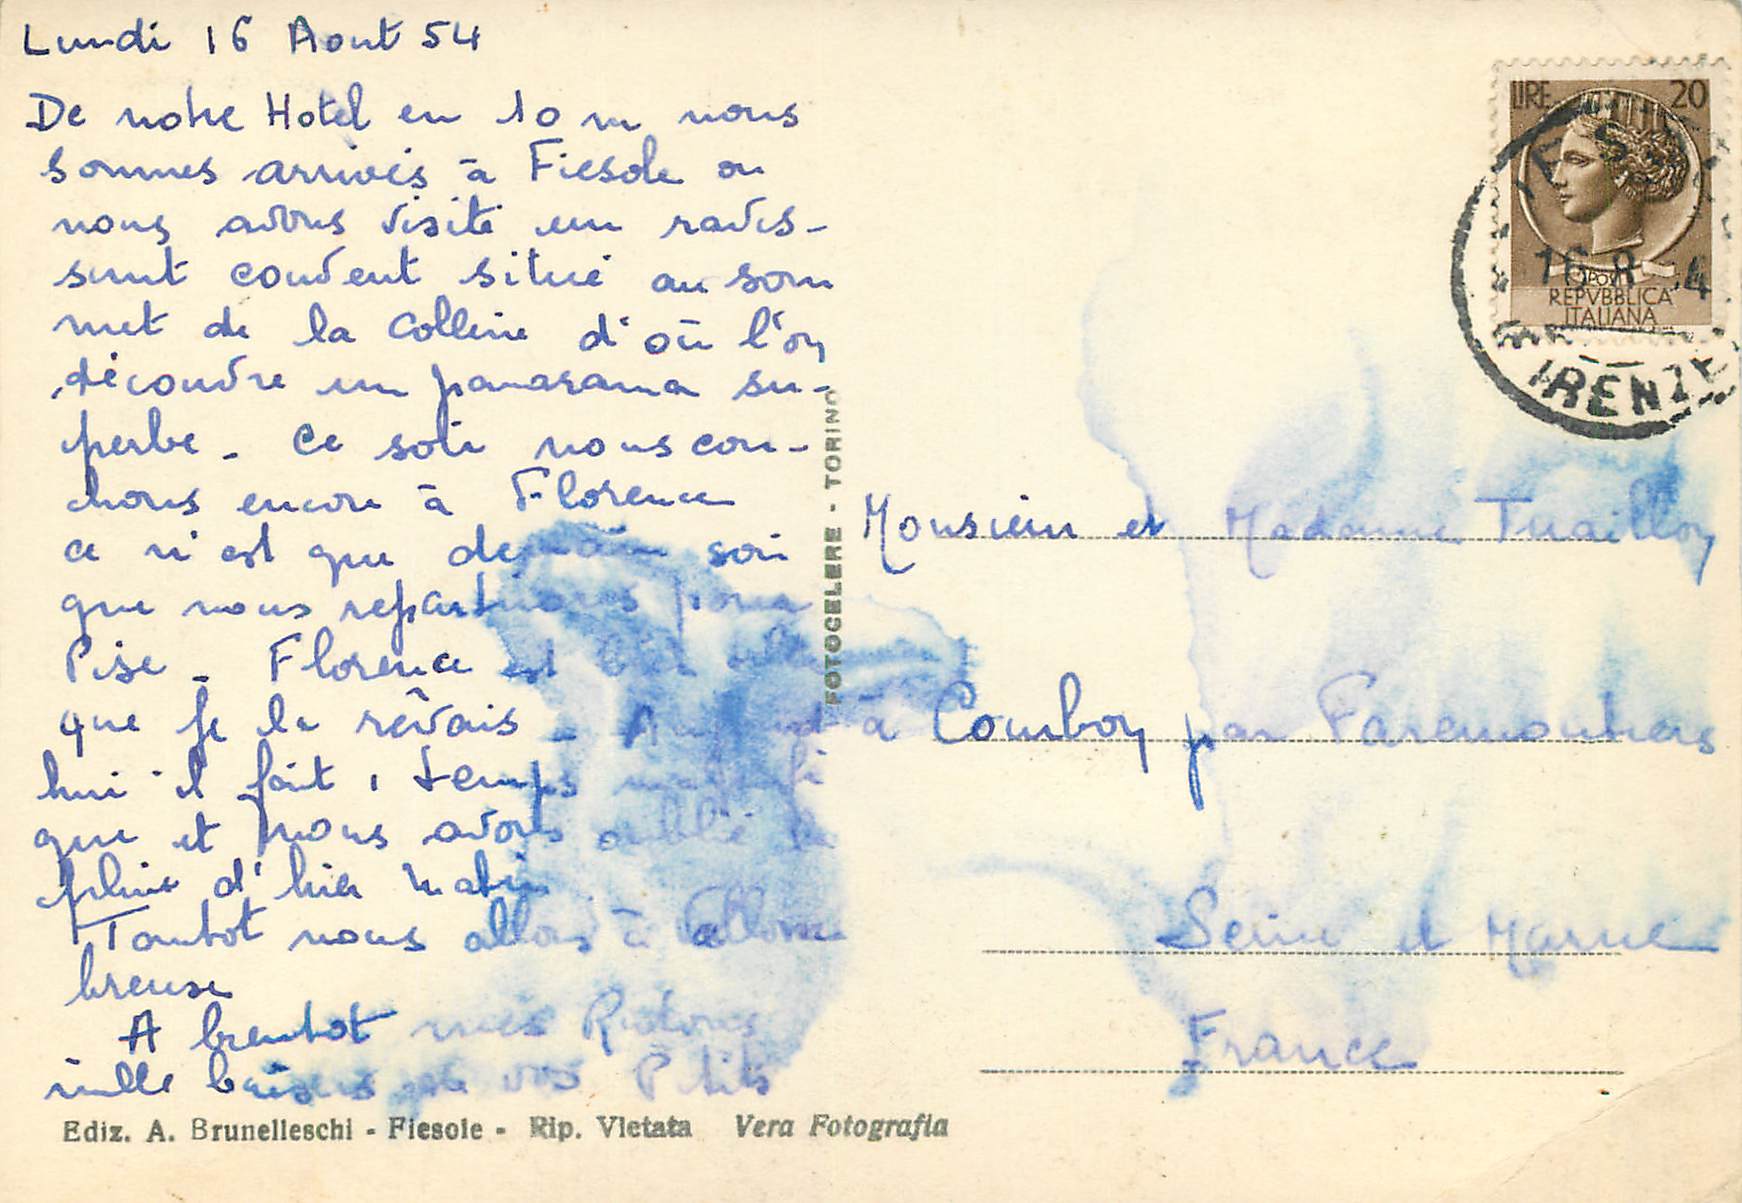 Lundi 16 Aout 54
De notre Hotel en 10 m nous
sommes arrivés à Fiesole ou
nous avons visité un ravis-
sant couvent situé au som
met de la Colline d'où l'on
découvre un panorama su-
perbe - Ce soir nous cou-
chons encore à Florence
ce n'est que demain soir
que nous repartirons pour
Pise - Florence est
que je la rêvais -
hui il fait 1 temps magnifi
que et nous avons oublié la
pluie d'hier matin
Tantot nous allons à Vallom
breuse
A bientot mes
mille baisers de vos Ptits
FOTOCELERE - TORINO
Ediz. A. Brunelleschi - Fiesole - Rip. Vietata Vera Fotografia
LIRE 20
POSTE
REPVBBLICA
ITALIANA
16 8 54
FIRENZE
Monsieur et Madame Tuaillon
à Courbon par Faremoutiers
Seine et Marne
France